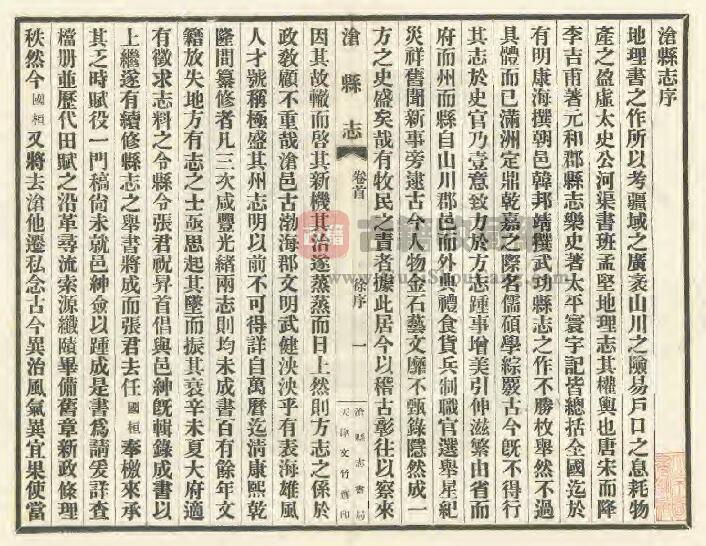 滄縣志序
地理書之作所以考疆域之廣袤山川之險易戶口之息耗物
產之盈虛太史公河渠書班孟堅地理志其權輿也唐宋而降
李吉甫著元和郡縣志樂史著太平寰宇記皆總括全國迄於
有明康海撰朝邑韓邦靖撰武功縣志之作不勝枚舉然不過
具體而已滿洲定鼎乾嘉之際名儒碩學綜覈古今既不得行
其志於史官乃壹意致力於方志踵事增美引伸滋繁由省而
府而州而縣自山川郡邑而外典禮食貨兵制職官選舉星紀
災祥舊聞新事旁逮古今人物金石藝文靡不甄錄隱然成一
方之史盛矣哉有牧民之責者據此居今以稽古彰往以察來
滄縣志
卷首
徐序
一
滄縣志書局
天津文竹齋印
因其故轍而啓其新機其治遂蒸蒸而日上然則方志之係於
政教顧不重哉滄邑古渤海郡文明武健泱泱乎有表海雄風
人才號稱極盛其州志明以前不可得詳自萬曆迄清康熙乾
隆間纂修者凡三次咸豐光緒兩志則均未成書百有餘年文
籍放失地方有志之士亟思起其墜而振其衰辛未夏大府適
有徵求志料之令縣令張君祝昇首倡與邑紳既輯錄成書以
上繼遂有續修縣志之舉書將成而張君去任國桓奉檄來承
其乏時賦役一門稿尚未就邑紳僉以踵成是書為請爰詳查
檔册並歷代田賦之沿革尋流索源纖賾畢備舊章新政條理
秩然今國桓又將去滄他遷私念古今異治風氣異宜果使當